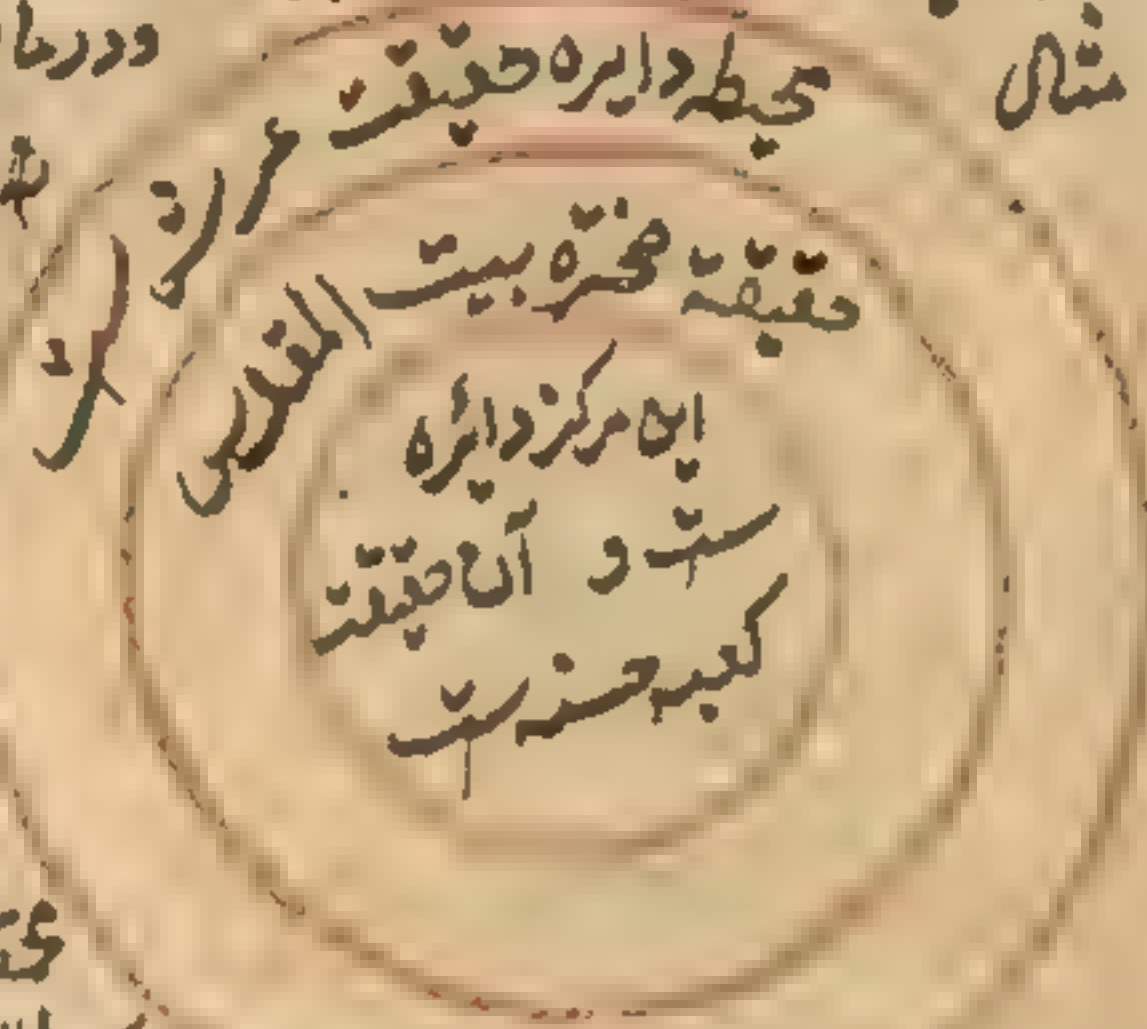 مثال
محیط دایره حقیقت عرش
حقیقة صخرّه بیت المقدس
این مرکز دایٔره
ست و آن حقیقت
کعبه حضرتست